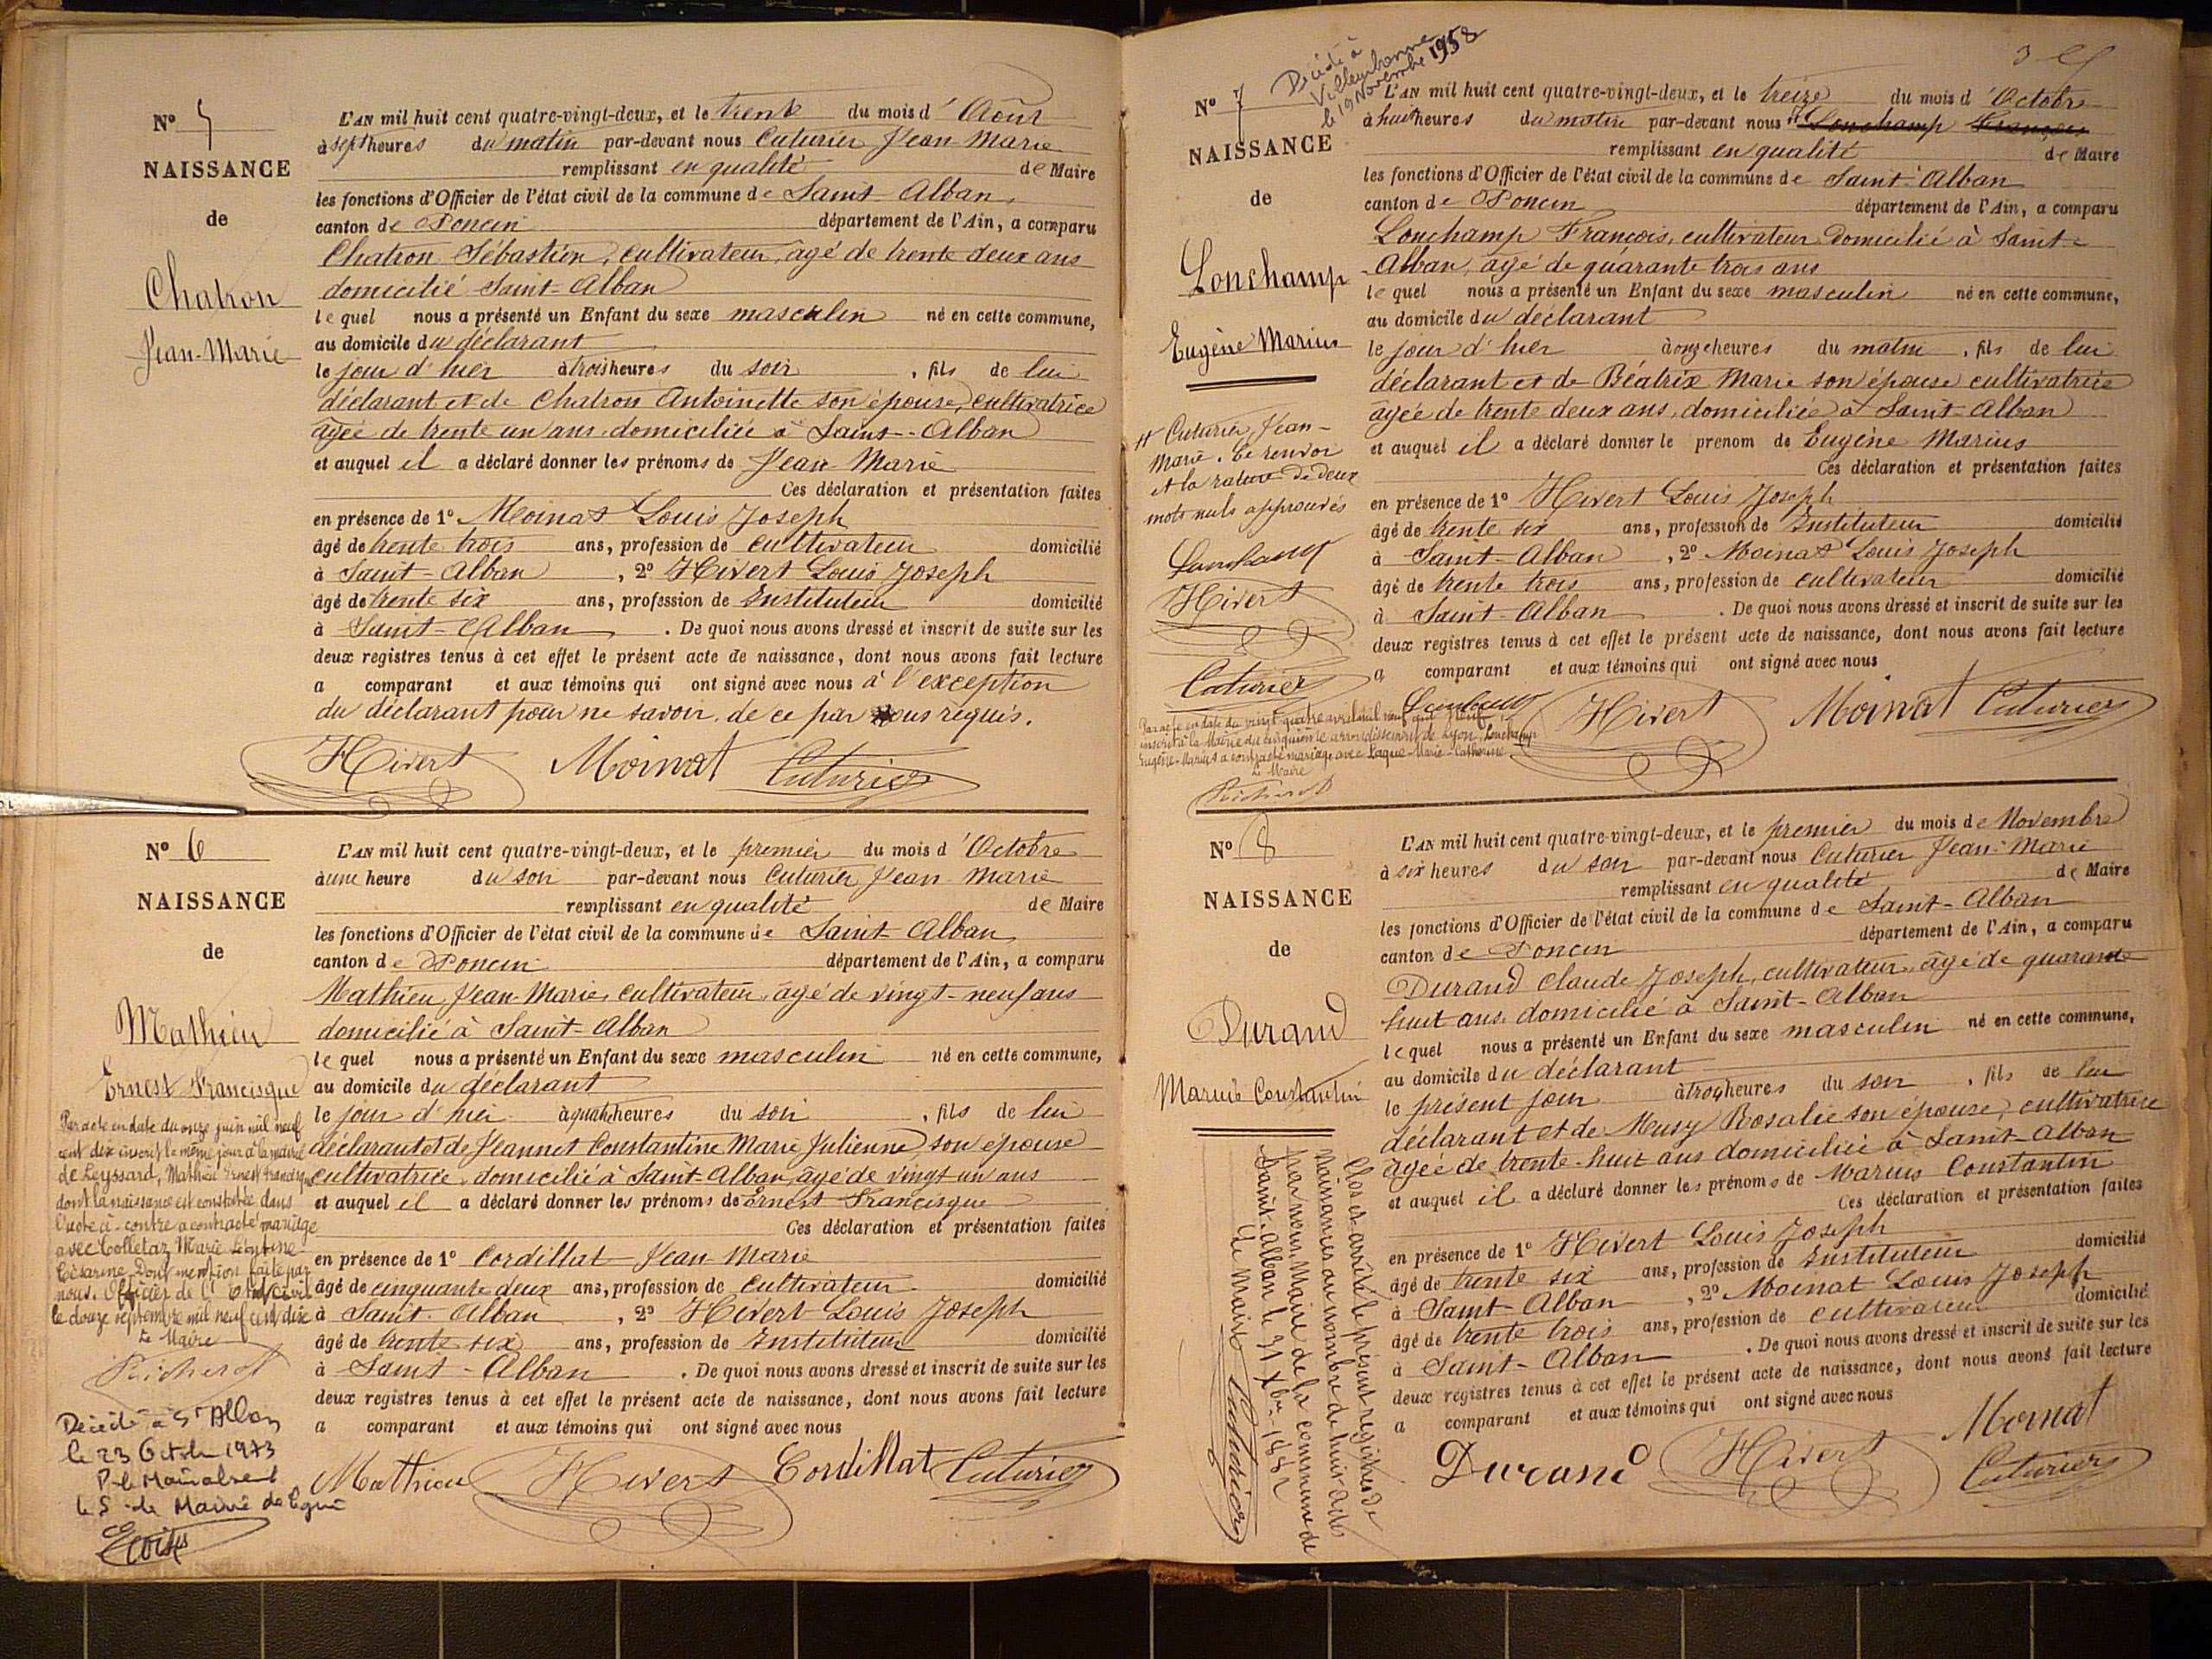 N° 5
NAISSANCE
de
Chatron
Jean-Marie
L'AN mil huit cent quatre-vingt-deux, et le trente du mois d'Août
à sept heures du matin par-devant nous Cuturier Jean-Marie
remplissant en qualité de Maire
les fonctions d'Officier de l'état civil de la commune de Saint-Alban
canton de Poncin département de l'Ain, a comparu
Chatron Sébastien, cultivateur, âgé de trente deux ans
domicilié Saint-Alban
lequel nous a présenté un Enfant du sexe masculin né en cette commune,
au domicile du déclarant
le jour d'hier à trois heures du soir, fils de lui
déclarant et de Chatron Antoinette son épouse, cultivatrice
âgée de trente un ans domiciliée à Saint-Alban
et auquel il a déclaré donner les prénoms de Jean-Marie
Ces déclaration et présentation faites
en présence de 1° Moinat Louis Joseph
âgé de trente trois ans, profession de cultivateur domicilié
à Saint-Alban, 2° Hivert Louis Joseph
âgé de trente six ans, profession de Instituteur domicilié
à Saint-Alban. De quoi nous avons dressé et inscrit de suite sur les
deux registres tenus à cet effet le présent acte de naissance, dont nous avons fait lecture
a comparant et aux témoins qui ont signé avec nous à l'exception
du déclarant pour ne savoir, de ce par nous requis.
Hivert Moinat Cuturier
N° 6
NAISSANCE
de
Mathieu
Ernest Francisque
Par acte en date du onze juin mil neuf
cent dix inscrit le même jour à la mairie
de Leyssard, Mathieu Ernest Francisque
dont la naissance est constatée dans
l'acte ci-contre a contracté mariage
avec Colletaz Marie Léontine
Césarine. Dont mention faite par
nous. Officier de l'Etat Civil
le douze septembre mil neuf cent dix
Le Maire
Richerot
Décédé à St Alban
le 23 Octobre 1973
L'AN mil huit cent quatre-vingt-deux, et le premier du mois d'Octobre
à une heure du soir par-devant nous Cuturier Jean-Marie
remplissant en qualité de Maire
les fonctions d'Officier de l'état civil de la commune de Saint-Alban
canton de Poncin département de l'Ain, a comparu
Mathieu Jean-Marie, cultivateur, âgé de vingt-neuf ans
domicilié à Saint-Alban
lequel nous a présenté un Enfant du sexe masculin né en cette commune,
au domicile du déclarant
le jour d'hier à quatre heures du soir, fils de lui
déclarant et de Jeannet Constantine Marie Julienne, son épouse
cultivatrice, domicilié à Saint-Alban, âgé de vingt un ans
et auquel il a déclaré donner les prénoms de Ernest Francisque
Ces déclaration et présentation faites
en présence de 1° Cordillat Jean-Marie
âgé de cinquante deux ans, profession de cultivateur domicilié
à Saint-Alban, 2° Hivert Louis Joseph
âgé de trente six ans, profession de Instituteur domicilié
à Saint-Alban. De quoi nous avons dressé et inscrit de suite sur les
deux registres tenus à cet effet le présent acte de naissance, dont nous avons fait lecture
a comparant et aux témoins qui ont signé avec nous
Mathieu Hivert Cordillat Cuturier
3
N° 7
Décédé à
Villeurbanne
le 19 Novembre 1958
NAISSANCE
de
Lonchamp
Eugène Marius
# Cuturier Jean-
Marie. Ce renvoi
et la rature de deux
mots nuls approuvés
Lonchamp
Hivert
Cuturier
Par acte en date du vingt quatre avril mil neuf cent neuf
inscrit à la Mairie du cinquième arrondissement de Lyon, Lonchamp
Eugène-Marius a contracté mariage avec Laque Marie-Catherine
Le Maire
Richerot
L'AN mil huit cent quatre-vingt-deux, et le treize du mois d'Octobre
à huit heures du matin par-devant nous # Lonchamp François
remplissant en qualité de Maire
les fonctions d'Officier de l'état civil de la commune de Saint-Alban
canton de Poncin département de l'Ain, a comparu
Lonchamp François, cultivateur, domicilié à Saint-
Alban, âgé de quarante trois ans
lequel nous a présenté un Enfant du sexe masculin né en cette commune,
au domicile du déclarant
le jour d'hier à onze heures du matin, fils de lui
déclarant et de Béatrix Marie son épouse cultivatrice
âgée de trente deux ans, domiciliée à Saint-Alban
et auquel il a déclaré donner le prenom de Eugène Marius
Ces déclaration et présentation faites
en présence de 1° Hivert Louis Joseph
âgé de trente six ans, profession de Instituteur domicilié
à Saint-Alban, 2° Moinat Louis Joseph
âgé de trente trois ans, profession de cultivateur domicilié
à Saint-Alban. De quoi nous avons dressé et inscrit de suite sur les
deux registres tenus à cet effet le présent acte de naissance, dont nous avons fait lecture
a comparant et aux témoins qui ont signé avec nous
Lonchamp Hivert Moinat Cuturier
N° 8
NAISSANCE
de
Durand
Marius Constantin
Clos et arrêté le présent registre de
naissances au nombre de huit actes
par nous, Maire de la commune de
Saint-Alban le 31 Xbre 1882
Le Maire Cuturier
L'AN mil huit cent quatre-vingt-deux, et le premier du mois de Novembre
à six heures du soir par-devant nous Cuturier Jean-Marie
remplissant en qualité de Maire
les fonctions d'Officier de l'état civil de la commune de Saint-Alban
canton de Poncin département de l'Ain, a comparu
Durand Claude Joseph, cultivateur, âgé de quarante
huit ans, domicilié à Saint-Alban
lequel nous a présenté un Enfant du sexe masculin né en cette commune,
au domicile du déclarant
le présent jour à trois heures du soir, fils de lui
déclarant et de Musy Rosalie son épouse, cultivatrice
âgée de trente-huit ans domiciliée à Saint-Alban
et auquel il a déclaré donner les prénoms de Marius Constantin
Ces déclaration et présentation faites
en présence de 1° Hivert Louis Joseph
âgé de trente six ans, profession de Instituteur domicilié
à Saint-Alban, 2° Moinat Louis Joseph
âgé de trente trois ans, profession de cultivateur domicilié
à Saint-Alban. De quoi nous avons dressé et inscrit de suite sur les
deux registres tenus à cet effet le présent acte de naissance, dont nous avons fait lecture
a comparant et aux témoins qui ont signé avec nous
Durand Hivert Moinat
Cuturier